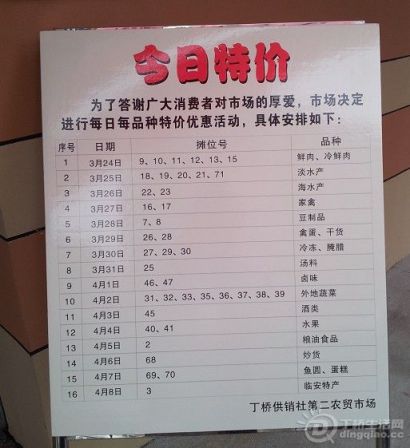 今日特价
为了答谢广大消费者对市场的厚爱，市场决定
进行每日每品种特价优惠活动，具体安排如下：
序号 日期 摊位号 品种
1 3月24日 9、10、11、12、13、15 鲜肉、冷鲜肉
2 3月25日 18、19、20、21、71 淡水产
3 3月26日 22、23 海水产
4 3月27日 16、17 家禽
5 3月28日 7、8 豆制品
6 3月29日 26、28 禽蛋、干货
7 3月30日 27、29、30 冷冻、腌腊
8 3月31日 25 汤料
9 4月1日 46、47 卤味
10 4月2日 31、32、33、35、36、37、38、39 外地蔬菜
11 4月3日 45 酒类
12 4月4日 40、41 水果
13 4月5日 2 粮油食品
14 4月6日 68 炒货
15 4月7日 69、70 鱼圆、蛋糕
16 4月8日 3 临安特产
丁桥供销社第二农贸市场
丁桥生活网
dingqiao.cn